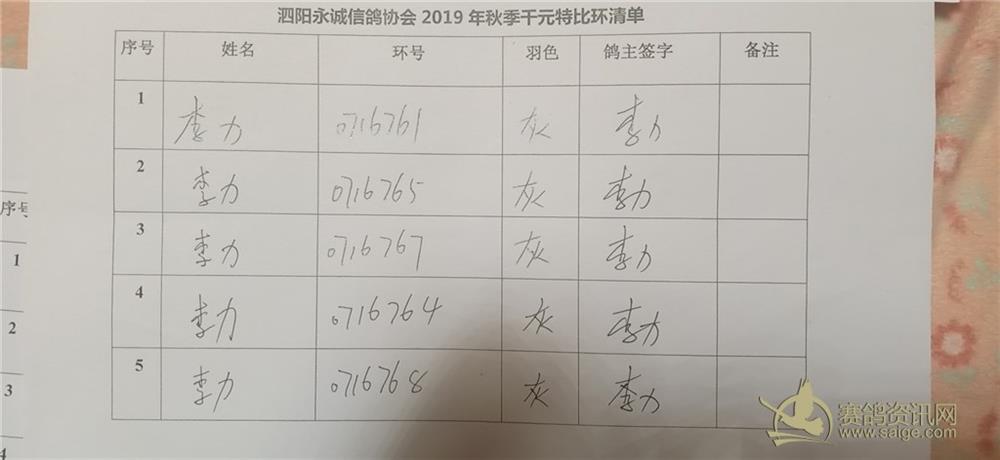 泗阳永诚信鸽协会 2019 年秋季千元特比环清单
序号 姓名 环号 羽色 鸽主签字 备注
1 李力 0716761 灰 李力
2 李力 0716765 灰 李力
3 李力 0716767 灰 李力
4 李力 0716764 灰 李力
5 李力 0716768 灰 李力
序号
1
2
3
4
赛鸽资讯网
www.saige.com